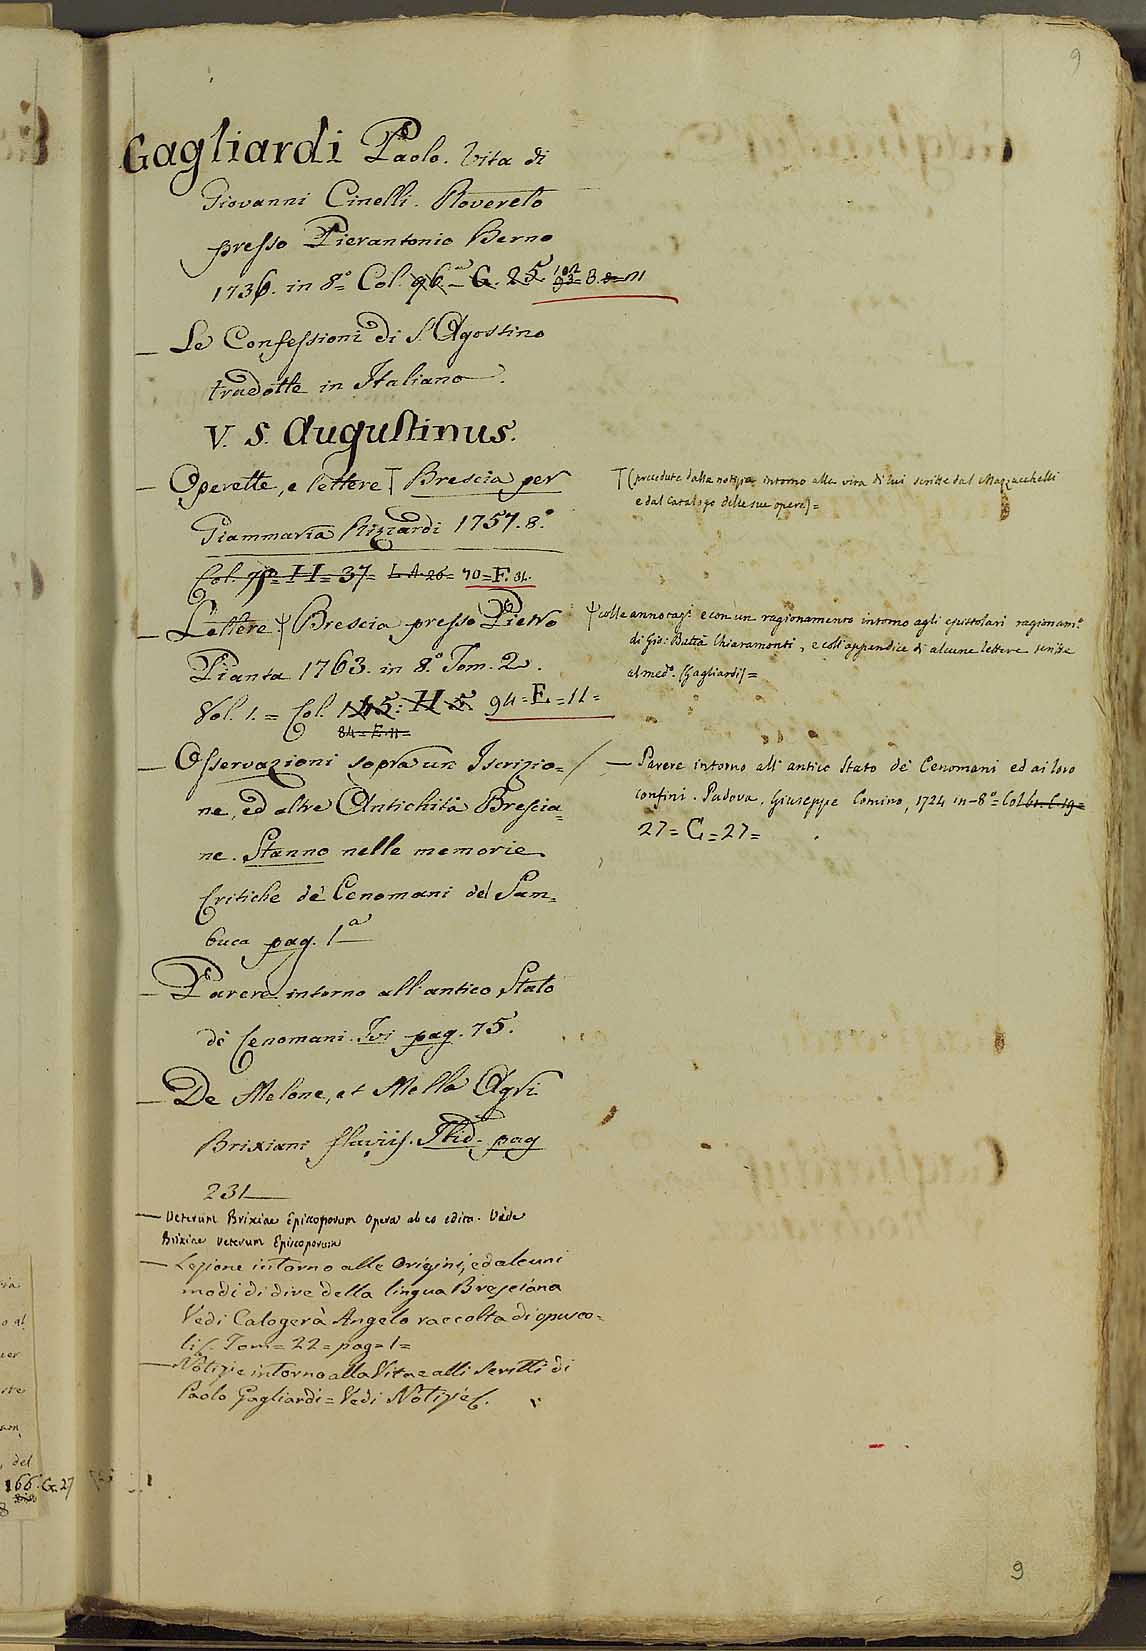 9
Gagliardi Paolo. Vita di
Giovanni Cinelli. Rovereto
presso Pierantonio Berno
1736. in 8.° Col. 96. G. 25 B. 11
— Le Confessioni di S. Agostino
tradotte in Italiano.
V. S. Augustinus.
— Operette, e lettere Brescia per
Giammaria Rizzardi 1757. 8.°
Col. H= 37= 70=F. 31.
— Lettere Ψ Brescia presso Pietro
Pianta 1763. in 8.° Tom. 2.
Vol. 1. = Col. 145: H 5. 94=E=11=
84=E=11=
— Osservazioni sopra un Iscrizio=
ne, ed altre Antichità Brescia=
ne. Stanno nelle memorie
Critiche de' Cenomani del Sam=
buca pag. 1.a
— Parere intorno all'antico Stato
de' Cenomani. Ivi pag. 75.
— De Melone, et Mella Agri
Brixiani fluviis. Ibid. pag
231
— Veterum Brixiae Episcoporum Opera ab eo edita. Vide
Brixiae Veterum Episcoporum
— Lezione intorno alle Origini, ed alcuni
modi di dire della lingua Bresciana
Vedi Calogerà Angelo raccolta di opusco=
li Tom= 22= pag= 1=
— Notizie intorno alla Vita e alli Scritti di
Paolo Gagliardi= Vedi Notizie
(precedute dalle notizie intorno alla vita di lui scritte dal Mazzucchelli
e dal Catalogo delle sue opere)=
Ψ colle annotaz.i e con un ragionamento intorno agli epistolari ragionam.i
di Gio: Batta Chiaramonti, e coll'appendice di alcune lettere scritte
al med.o (Gagliardi)=
— Parere intorno all'antico Stato de' Cenomani ed ai loro
confini. Padova, Giuseppe Comino, 1724 in-8.°= Col C. 19=
27= C= 27=
del
166. G. 27
9